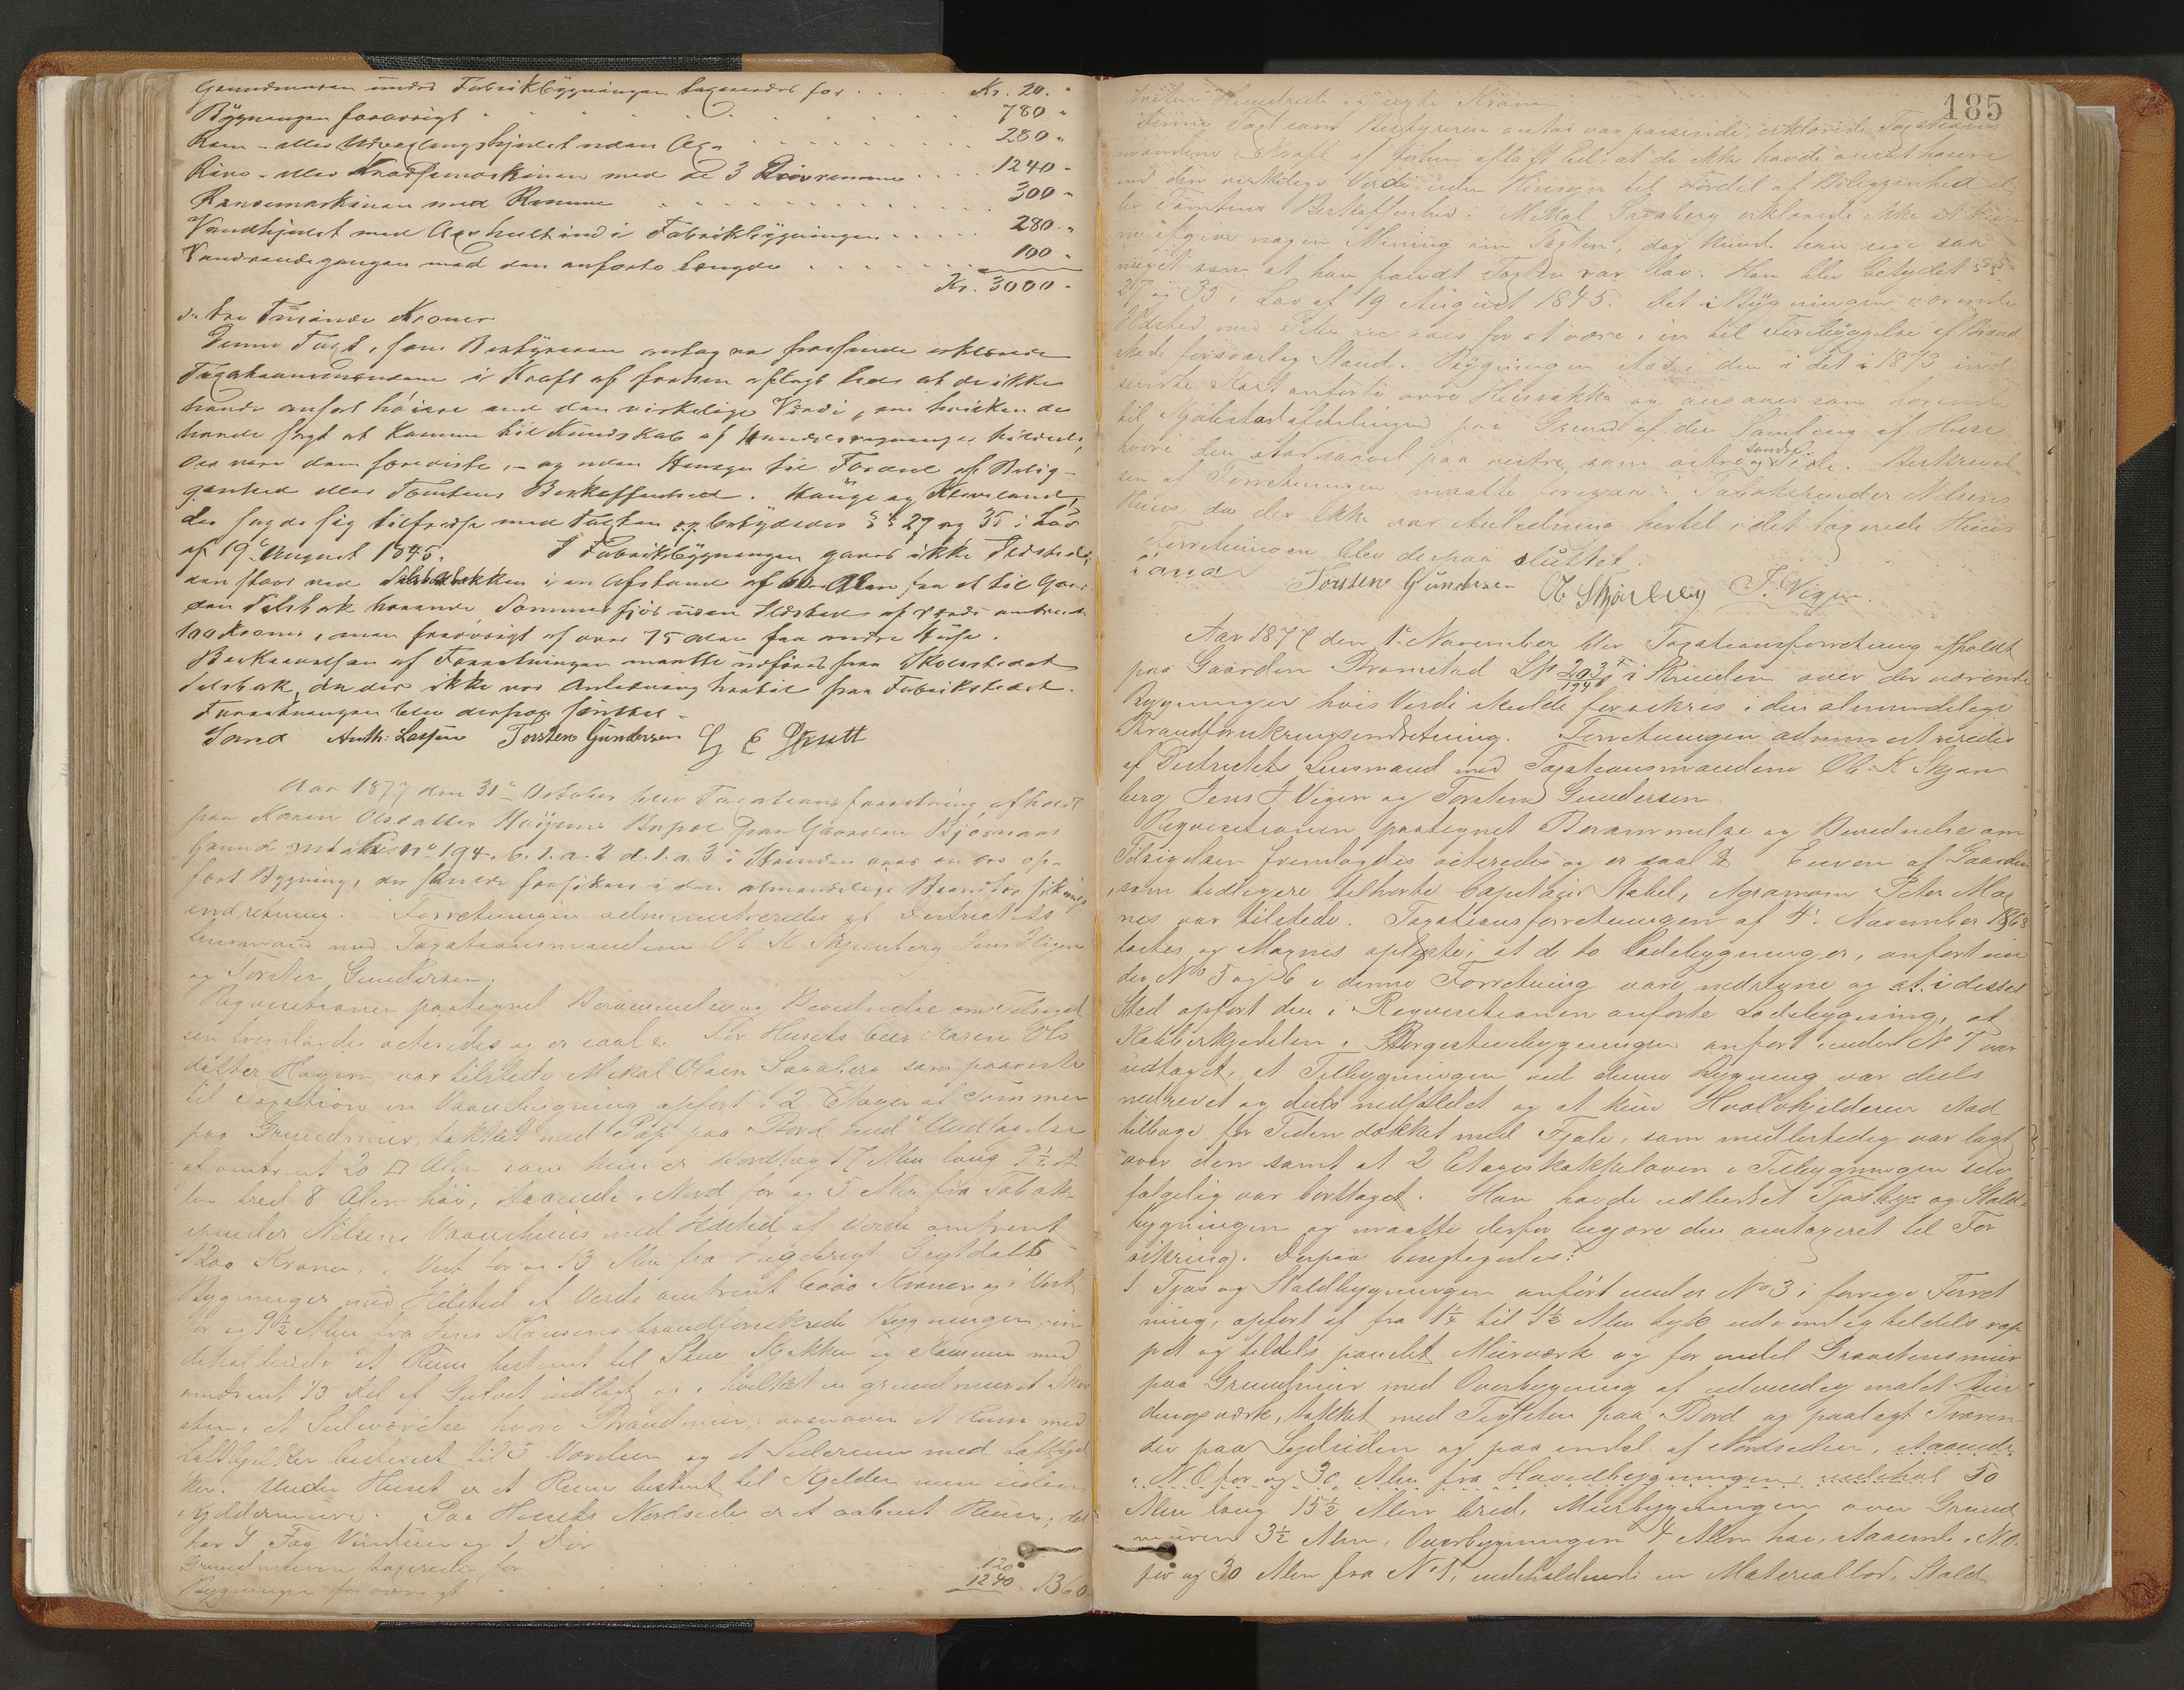 Grundmuren under Fabrikbygningen taxeredes for . . . . Kr. 20. "
Bygningen forøvrigt . . . . . . . . 780 "
Kam - eller Udvexlingshjulet uden Axe . . . . . . 280 "
Rive- eller Kradsemaskinen med de 3 Rivremme . . . . 1240 -
Rensemaskinen med Remme . . . . . . . . 300 "
Vandhjulet med Axe heelt ind i Fabrikbygningen . . . . . 280 . "
Vandrendegangen med den anførte Længde . . . . . . 100 "
Kr. 3000 -
er tre Tusinde Kroner
Denne Taxt, som Bestyreren antog var passende erklærede
Taxationsmændene i Kraft af forhen aflagt Eed at de ikke
havde anført høiere end den virkelige Værdi, om hvilken de
havde søgt at komme til Kundskab af
der vare dem foreviste, - og uden Hensyn til Fordeel af Belig-
genhed eller Tomtens Beskaffenhed. Hauge og Kleveland,
der sagde sig tilfreds med Taxten og betydedes §§ 27 og 35 i Lov
af 19 August 1845. I Fabrikbygningen gaves ikke Ildsted;
den staar ved i en Afstand af Alen fra et til Gaar-
den Selsbak hørende Sommerfjøs uden Ildsted af Værdi omtrent
100 Kroner, men forøvrigt af over 75 Alen fra andre Huse.
Beskrivelsen af Forretningen maatte udføres fra
Selsbak, da der ikke var Anledning hertil fra Fabrikstedet.
Forretningen blev derpaa sluttet.
Sand Anth: Lassen Torsten Gundersen
Aar 1877 den 31te October blev Taxationsforretning afholdt
paa Karen Olsdatter Bopæl paa Gaarden
Grund No 194. b. 1. a. 2 d. 1. a. 3 i Strinden over en der op-
ført Bygning, der skulde forsikres i den almindelige Brandforsikrings
indretning. Forretningen administreredes af Districtets
Lensmand med Taxationsmændene Ol. K. Skjærberg Jens Vigen
og Torsten Gundersen.
Reqvisitionen paategnet Berammelse og Bevidnelse om Tilsigel
sen fremlagdes acteredes og er saal. Før Husets Eier Karen Ols
datter var tilstede Mikal Olsen Saxaberg som paaviste
til Taxation en Vaanebygning opført i 2 Etager af Tømmer
paa Grundmuur, tækket med Pap paa Bord med Undtagelse
af omtrent 20 □ Alen som kun er 17 Alen lang 9½ A
len bred 8 Alen høi, staaende i Nord for og 5 Alen fra Tobak
spinder Nilsens Vaanehuus med Ildsted af Værdi omtrent
1200 Kroner, i Vest for og 13 Alen fra
Bygninger med Ildsted af Værdi omtrent 6000 Kroner og i Vest
for og 9½ Alen fra Jens Hansens brandforsikrede Bygninger, in
deholdende et Rum bestemt til Stue Kjøkken og Kammer med
omtrent 1/3 Del af Gulvet indlagt og i hvilket en grundmuret Skor
sten, et Sideværelse hvori Brandmuur; ovenover et Rum med
Loftbjelker bestemt til 3 Værelser og et Siderum med Loftbjel
ker. Under Huset er et Rum bestemt til Kjelder men uden
Kjeldermure. Paa Husets Nordside er et aabent Rum; det
har 9 Fag Vinduer og 1 Dør
Grundmuren taxeredes for 120
Bygningen forøvrigt . . . . . . 1240 1360
tretten Hundrede og sexti Kroner 185
Denne Taxt som Bestyreren antog var passende, erklærede Taxations
mændene i Kraft af forhen aflagt Eed, at de ikke havde ansat høiere
end den virkelige Værdi, uden Hensyn til Fordel af Beliggenhed el
ler Tomtens Beskaffenhed. Mikal Saxaberg erklærede ikke at kun
ne afgive nogen Mening om Taxten, dog kunde han sige saa
meget som at han fandt Taxten var lav. Han blev betydet §§
27 og 35 i Lov af 19 August 1845. Det i Bygningen værende
Ildsted med Pibe ansaaes for at være i en til Forebyggelse af Brand
skade forsvarlig Stand. Bygningen staar i den i det i 1873 ind
sendte Kart anførte øvre Husrække og ansaaes som hørende
til Kjøbstadafdelingen paa Grund af den Samling af Huse
hvori den staar saavel paa vestre, som østre og søndre Side. Beskrivel
sen af Forretningen maatte foregaa i Tobakspinder Nilsens
Huus, da der ikke var Anledning hertil i det taxerede Huus
Forretningen blev derpaa sluttet.
Sand Torsten Gundersen Ol Skjærberg J. Vigen.
Aar 1877 den 1te November blev Taxationsforretning afholdt
paa Gaarden Lk i Strinden over der værende
Bygninger hvis Værdi skulde forsikres i den almindelige
Brandforsikringsindretning. Forretningen administreredes
af Districtets Lensmand med Taxationsmændene Ol. K Skjær
berg Jens J Vigen og Torsten Gundersen.
Reqvisitionen paategnet Berammelse og Bevidnelse om
Tilsigelsen fremlagdes acteredes og er saal. Eieren af Gaarden
som tidligere tilhørte Capitain Stabel, Agronom Peter Mag
nes var tilstede. Taxationsforretningen af 4. November 1868
læstes og Magnes oplyste; at de to Ladebygninger, anført un
der No 5 og 6 i denne Forretning vare nedrevne og at i disses
Sted opført den i Reqvisitionen anførte Ladebygning, at
Kobberkjedelen i Borgestuebygningen anført under No 7 var
udtaget, at Tilbygningen ved denne Bygning var dels
nedrevet og dels nedfaldet og at kun Hvælvkjelderen stod
tilbage for Tiden dækket med Fjæle, som midlertidig var lagt
over den samt at 2 Etages Kakkelovn i Tilbygningen selv
følgelig var borttaget. Han havde udbedret Fjøs og Stald
bygningen og maatte derfor begjære den omtaxeret til For
sikring. Derpaa besigtigedes:
1 Fjøs og Staldbygningen anført under No 3 i forrige Forret
ning, opført af fra 1¼ til 1½ Alen tyk udvendig tildels rap
pet og tildels pandet Murværk og for endel Graastensmuur
paa Grundmuur med Overbygning af udvendig malet Bin
dingsværk, tækket med Teglsten paa Bord og paalagt Tværen
der paa Sydsiden og paa endel af Nordsiden, staaende
i N.O. for og 30 Alen fra Hovedbygningen, indehol 50
Alen lang 15½ Alen bred, Muurbygningen over Grund
muren 3½ Alen, Overbygningen 4 Alen høi, staaende i N.O.
for og 30 Alen fra No 1, indeholdende en Materialbod, Stald